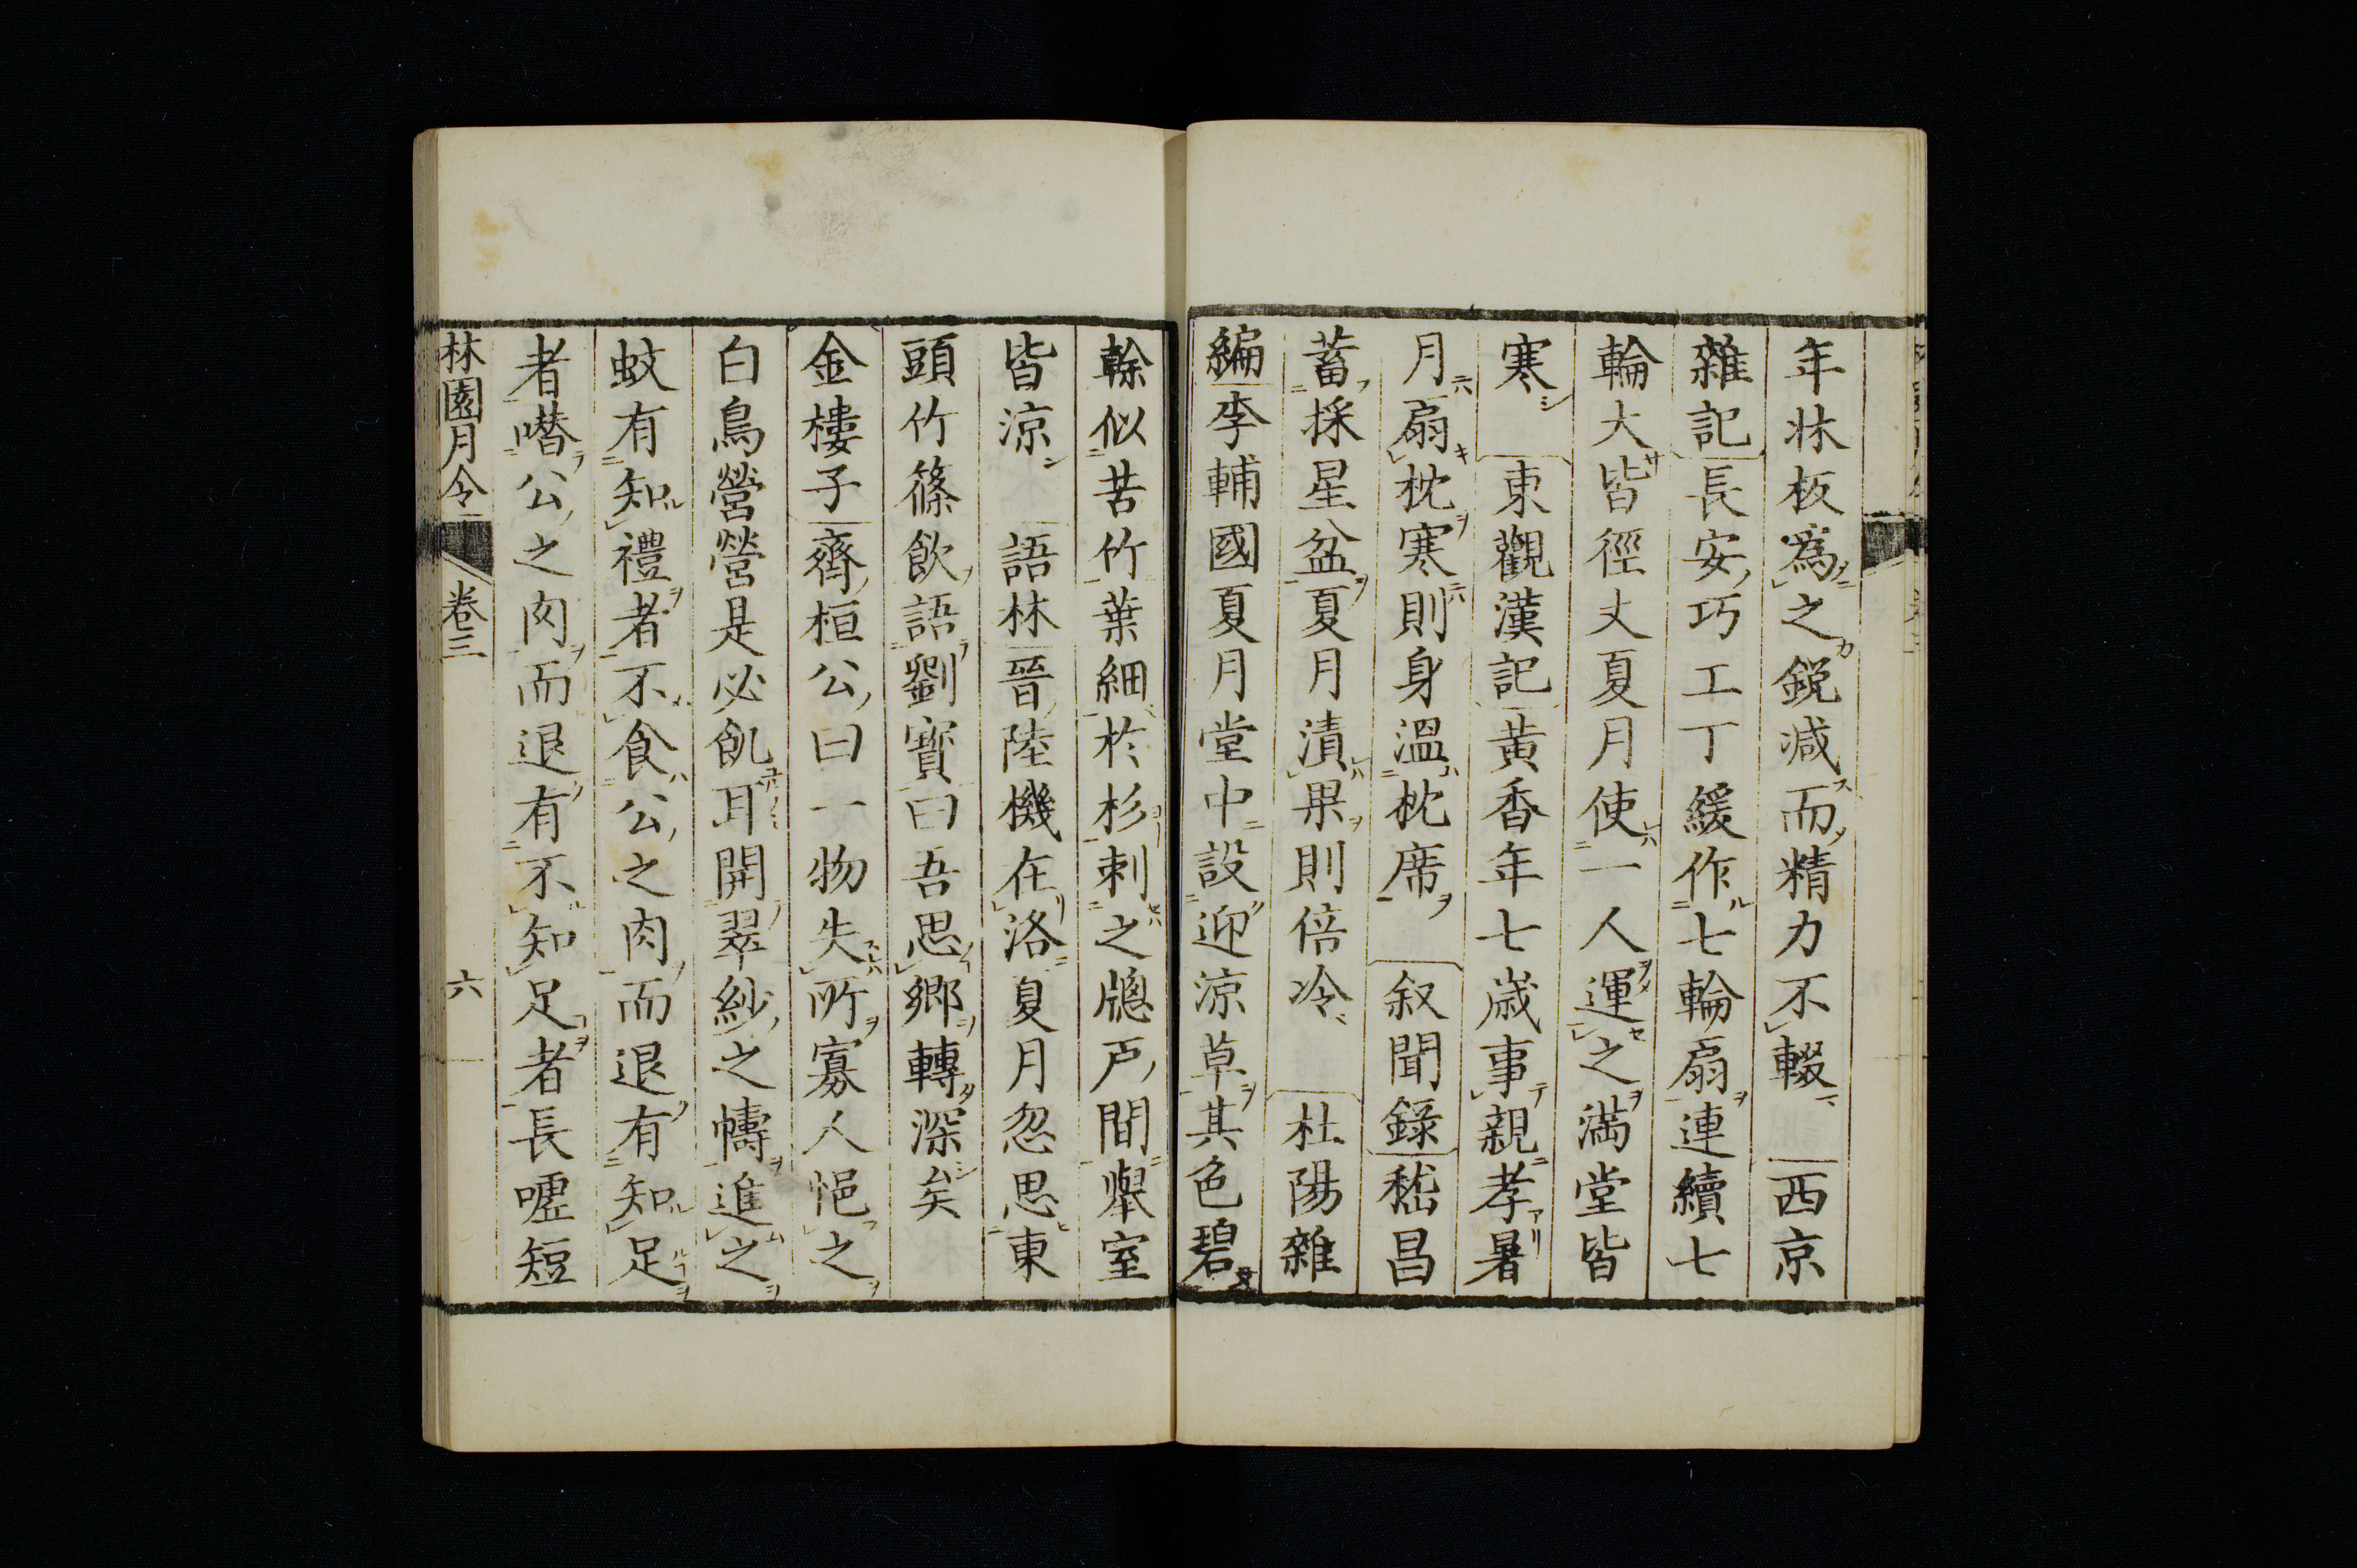 年牀板爲之鋭减而精力不輟 西京
雜記長安巧工丁緩作七輪扇連續七
輪大皆徑丈夏月使一人運之満堂皆
寒 東觀漢記黄香年七歳事親孝暑
月扇枕寒則身溫枕席 叙聞錄嵇昌
蓄採星盆夏月漬果則倍冷 杜陽雜
編李輔國夏月堂中設迎涼草其色碧
榦似苦竹葉細於杉刺之牕戸間擧室
皆涼 語林晉陸機在洛夏月忽思東
頭竹篠飲語劉寳曰吾思鄉轉深矣
金樓子齊桓公曰一物失所寡人悒之
白鳥營營是必飢耳開翠紗之幬進之
蚊有知禮者不食公之肉而退有知足
者噆公之肉而退有不知足者長嘘短
林園月令 卷三 六